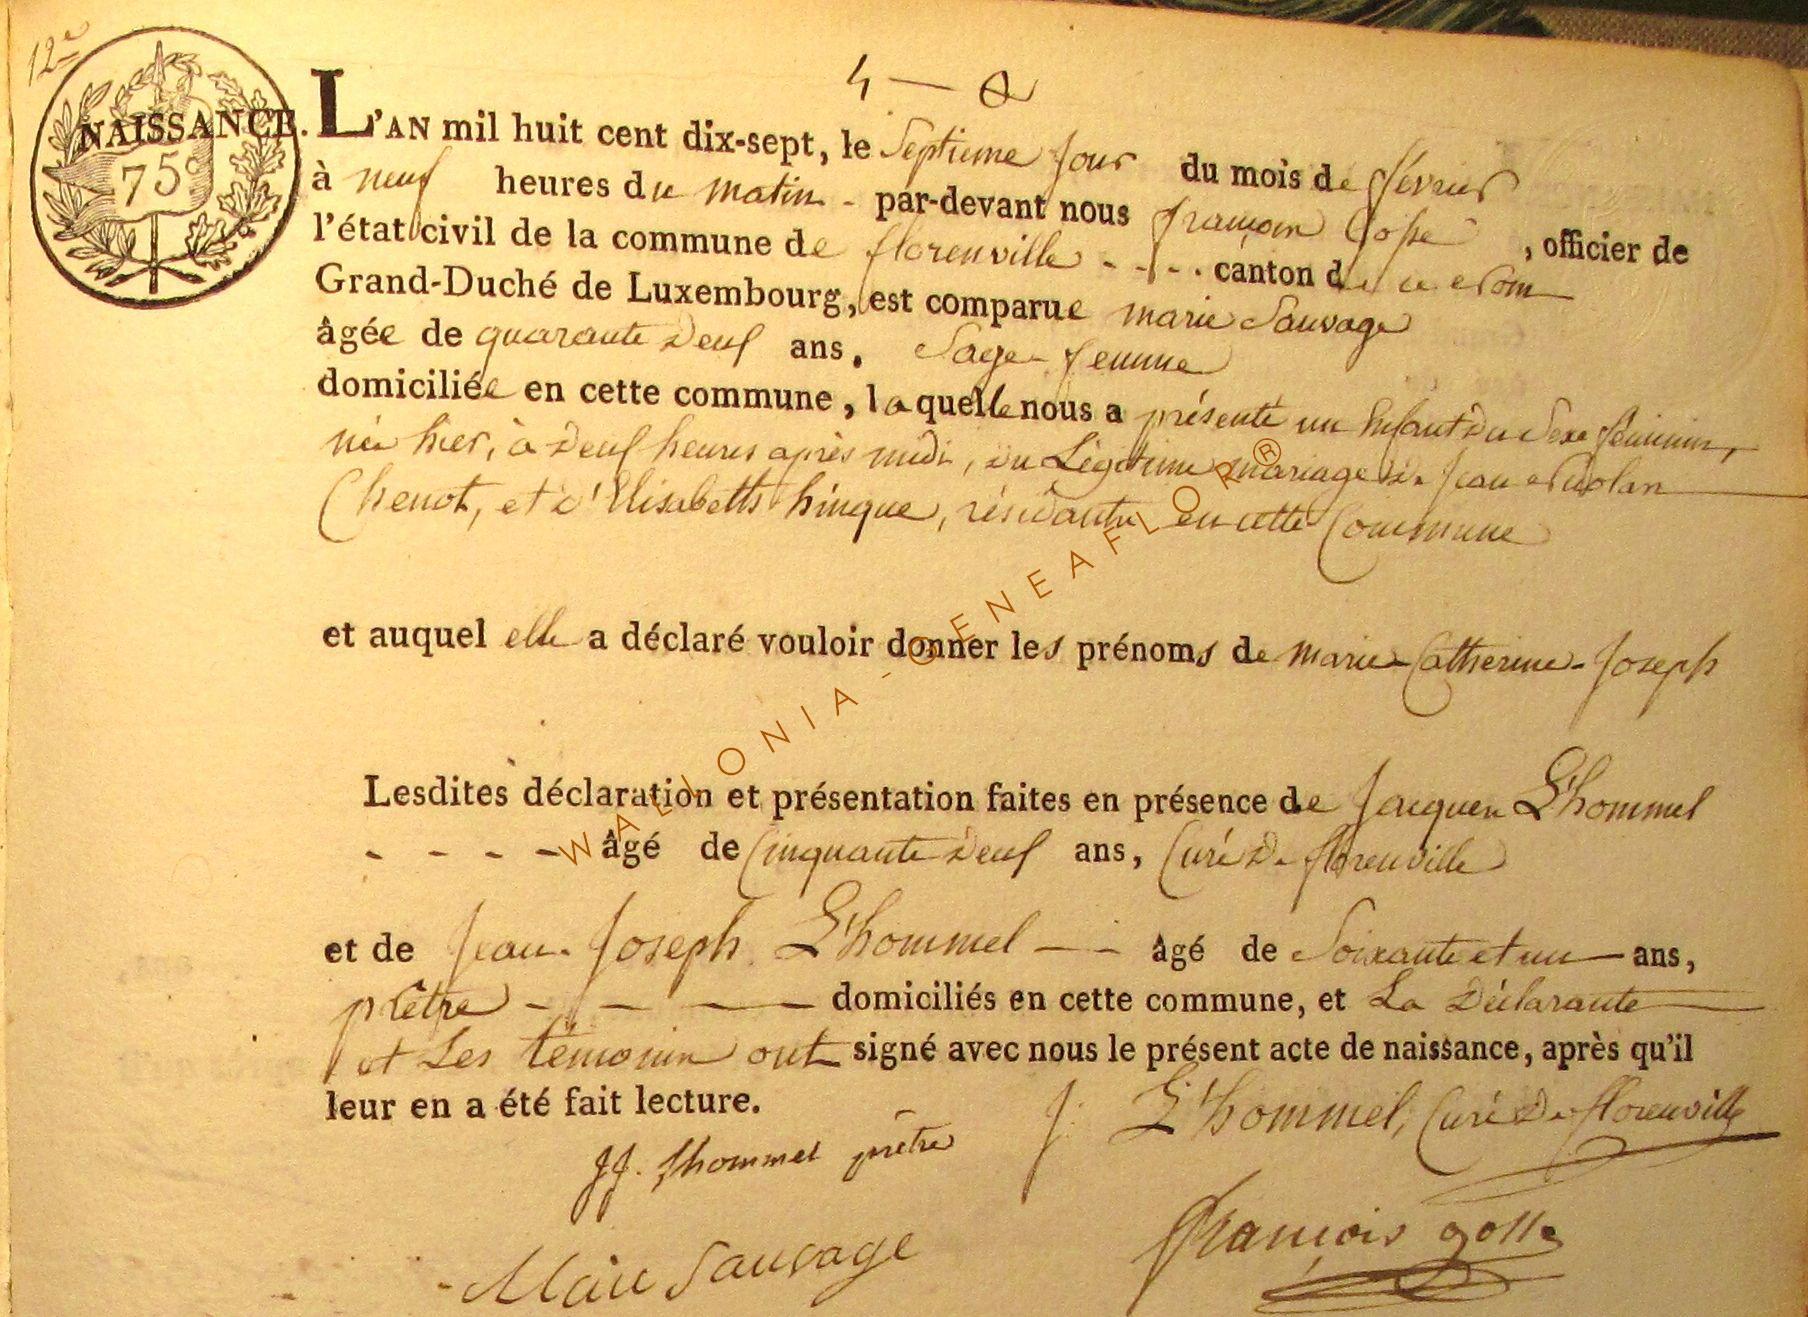 12e
4 —
NAISSANCE.
75c
L'AN mil huit cent dix-sept, le Septieme jour du mois de février
à neuf heures du matin - par-devant nous françois Gosse, officier de
l'état civil de la commune de florenville - - - - canton de ce nom
Grand-Duché de Luxembourg, est comparue marie Sauvage
âgée de quarante deux ans, Sage-femme
domiciliée en cette commune, laquelle nous a présenté un Enfant du Sexe féminin,
née hier, à deux heures après midi, du Légitime mariage de jean Nicolas
Chenot, et d'Elisabeth hinque, résidants en cette Commune
et auquel elle a déclaré vouloir donner les prénoms de marie-Catherine-Joseph
Lesdites déclaration et présentation faites en présence de Jacques L'hommel
- - - - âgé de Cinquante deux ans, Curé de florenville
et de Jean-Joseph L'hommel — - âgé de Soixante et un ans,
prêtre - — - — domiciliés en cette commune, et La Déclarante
et Les témoins ont signé avec nous le présent acte de naissance, après qu'il
leur en a été fait lecture.
J. L'hommel, Curé de florenville
JJ. Lhommel prêtre
françois gosse
Marie Sauvage
WALLONIA - GENEAFLOR®